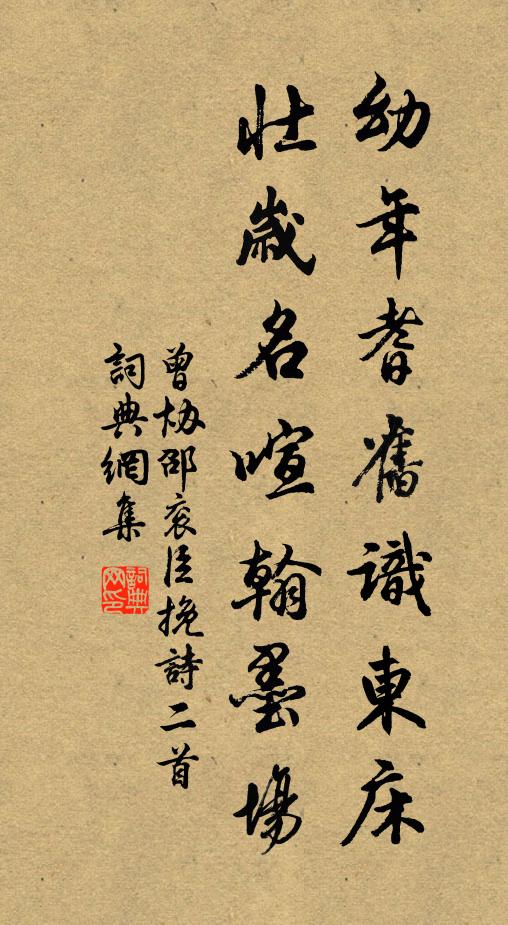 幼年耆舊識東床
壯歲名喧翰墨場
曾协邵衮臣挽詩二首
詞典網集
詞典网印